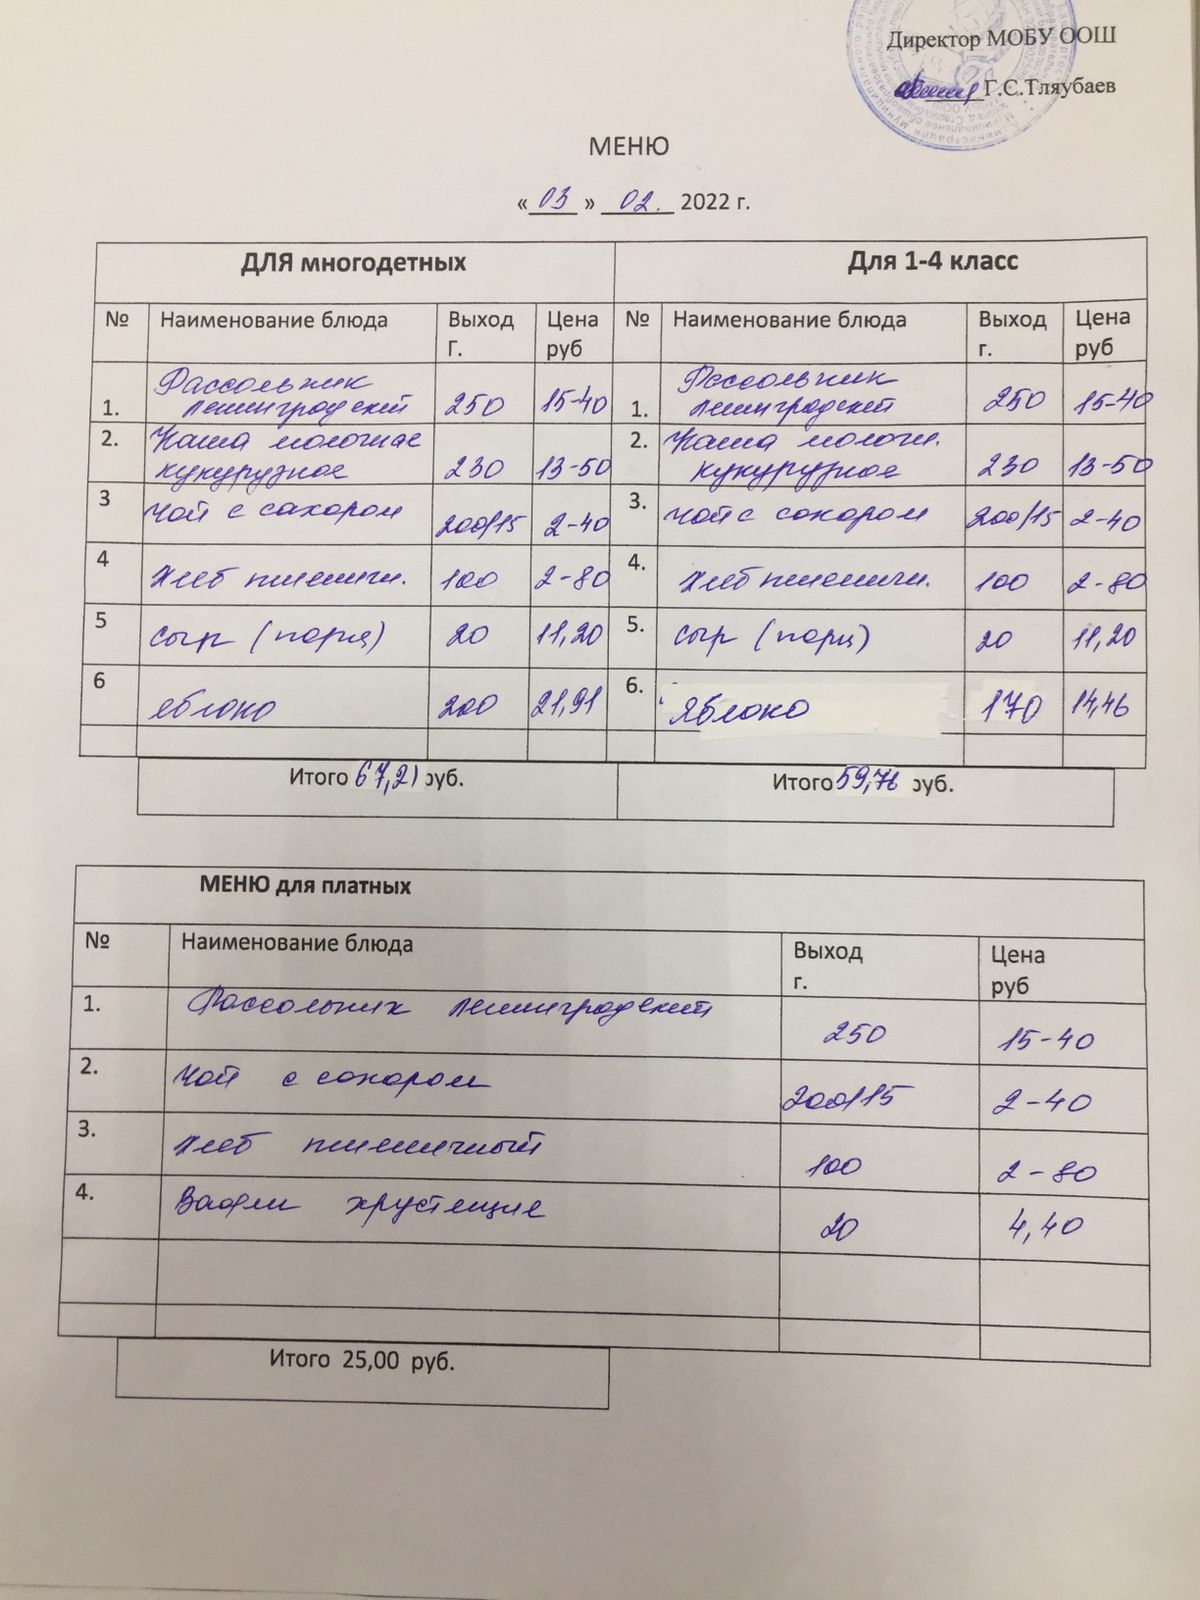 Директор МОБУ ООШ
Г.С.Тляубаев
МЕНЮ
« 03 » 02. 2022 г.
ДЛЯ многодетных Для 1-4 класс
№ Наименование блюда Выход Г. Цена руб № Наименование блюда Выход г. Цена руб
1. Рассольник ленинградский 250 15-40 1. Рассольник ленинградский 250 15-40
2. Каша молочная кукурузная 230 13-50 2. Каша молочн. кукурузная 230 13-50
3 Чай с сахаром 200/15 2-40 3. Чай с сахаром 200/15 2-40
4 Хлеб пшеничн. 100 2-80 4. Хлеб пшеничн. 100 2-80
5 сыр (порц) 20 11,20 5. сыр (порц) 20 11,20
6 яблоко 200 21,91 6. Яблоко 170 14,46
Итого 67,21 руб. Итого 59,76 руб.
МЕНЮ для платных
№ Наименование блюда Выход г. Цена руб
1. Рассольник ленинградский 250 15-40
2. Чай с сахаром 200/15 2-40
3. Хлеб пшеничный 100 2-80
4. Вафли хрустящие 20 4,40
Итого 25,00 руб.